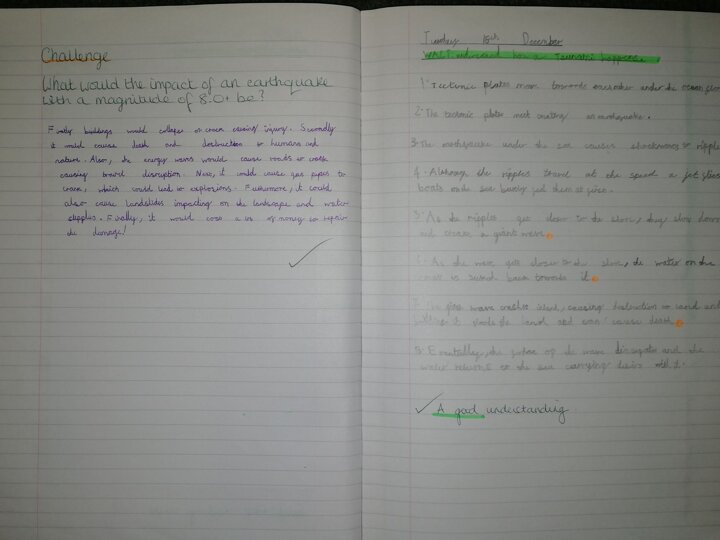 Challenge
What would the impact of an earthquake
with a magnitude of 8.0+ be?
Firstly buildings would collapse or crack causing injury. Secondly
it could cause death and destruction to humans and
nature. Also, the energy waves would cause roads to crack
causing travel disruption. Next, it could cause gas pipes to
crack, which could lead to explosions. Furthermore, it could
also cause landslides impacting on the landscape and water
supplies. Finally, it would cost a lot of money to repair
the damage!
Tuesday 15th December
WALT: understand how a Tsunami happens.
1. Tectonic plates move towards eachother under the ocean floor
2. The tectonic plates meet creating an earthquake.
3. The earthquake under the sea causes shockwaves or ripples
4. Although the ripples travel at the speed a jet
boats on the sea barely feel them at
5. As the ripples get closer to the shore, they slow down
and create a giant wave.
6. As the wave gets closer to the shore, the water on the
is sucked back towards it.
7. The giant wave crashes inland, causing destruction to land and
buildings it floods the land and even cause death.
8. Eventually, the of the wave and the
water returns to the sea carrying with it.
A good understanding